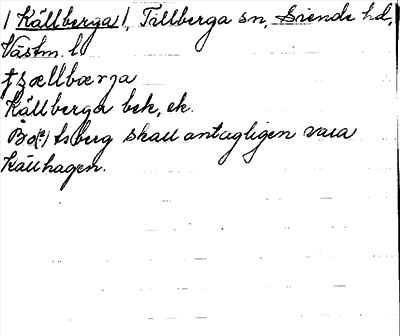 ! Källberga !, Tillberga sn, Siende hd,
Västm. l.
tʒællbærja
Källberga bek, ek.
Bo(?)tsberg skall antagligen vara
Källhagen.